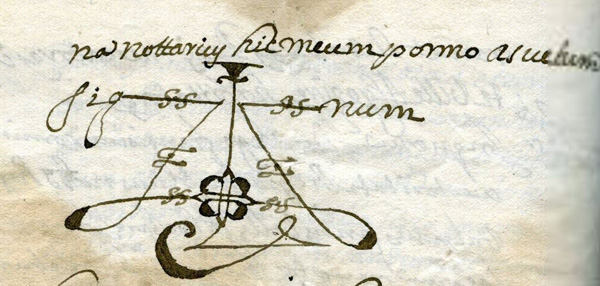 na nottarius hic meum ponno asuetum
sig num